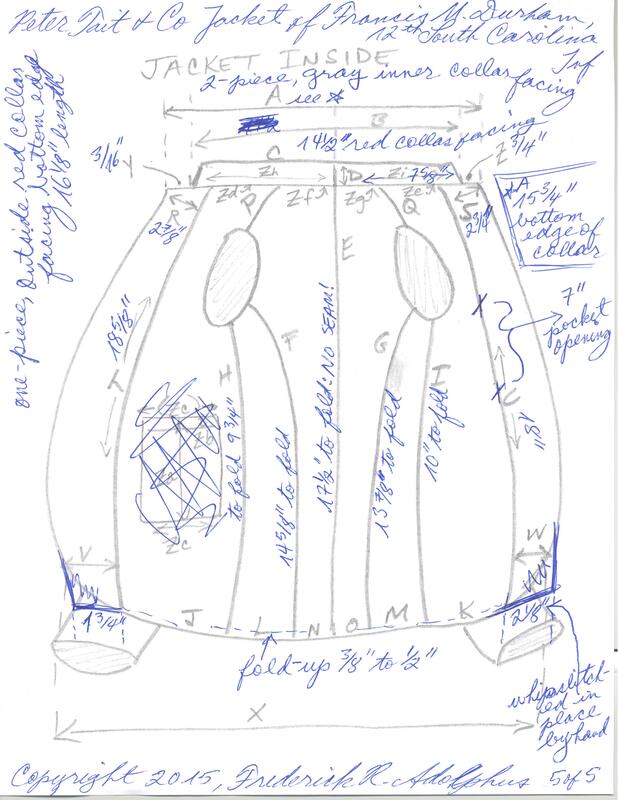 Peter Tait & Co Jacket of Francis M. Durham,
12th South Carolina
Inf
JACKET INSIDE
2-piece, gray inner collar facing
A see *
B
14 1/2" red collar facing
C
one-piece, outside red collar
facing bottom edge
16 1/8" length
3/16" Y
Z 3/4"
Zh
D
Zi 7 5/8"
Zd P Zf
Zg Ze
Q
R
2 7/8"
S
2 3/4"
*A
15 3/4"
bottom
edge of
collar
E
18 5/8"
T
F
G
H
I
X
X
7"
pocket
opening
U
18"
Zc
Zb
Za
Zc
to fold 9 3/4"
14 5/8" to fold
17 1/2" to fold: NO SEAM!
13 7/8" to fold
10" to fold
V
W
1 3/4"
J
L
N
O
M
K
2 1/8"
fold-up 3/8" to 1/2"
whipstitch-
ed in
place
by hand
X
Copyright 2015, Frederick R. Adolphus 5 of 5